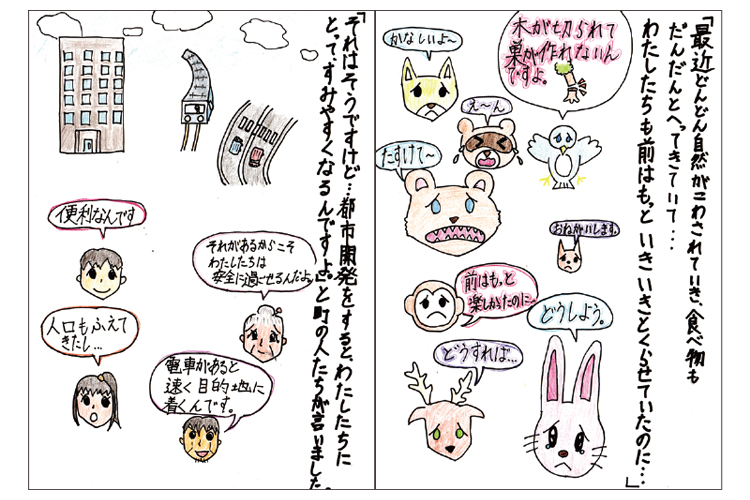 「最近どんどん自然がこわされていき、食べ物も
だんだんとへってきていて…
わたしたちも前はもっといきいきとくらせていたのに…」
木が切られて
巣が作れないん
ですよ。
かなしいよ～
え～ん
たすけて～
おねがいします。
前はもっと
楽しかたのに…
どうしよう。
どうすれば…
「それはそうですけど…都市開発をすると、わたしたちに
とってすみやすくなるんですよ。」と町の人たちが言いました。
便利なんです
それがあるからこそ
わたしたちは
安全に過ごせるんだよ。
人口もふえて
きたし…
電車があると
速く目的地に
着くんです。